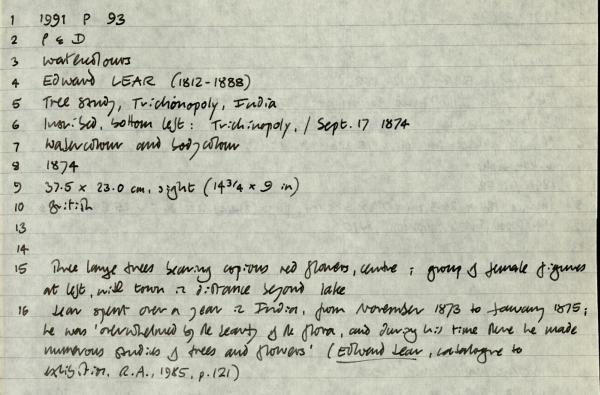 1 1991 P 93
2 P & D
3 Watercolours
4 Edward LEAR (1812-1888)
5 Tree study, Trichonopoly, India
6 Inscribed, bottom left: Trichinopoly, / Sept. 17 1874
7 Watercolour and bodycolour
8 1874
9 37.5 x 23.0 cm, sight (14 3/4 x 9 in)
10 British
13
14
15 Three large trees bearing copious red flowers, centre; group of female figures
at left, with town in distance beyond lake
16 Lear spent over a year in India, from November 1873 to January 1875;
he was 'overwhelmed by the beauty of the flora, and during his time there he made
numerous studies of trees and flowers' (Edward Lear, catalogue to
exhibition, R.A., 1985, p.121)